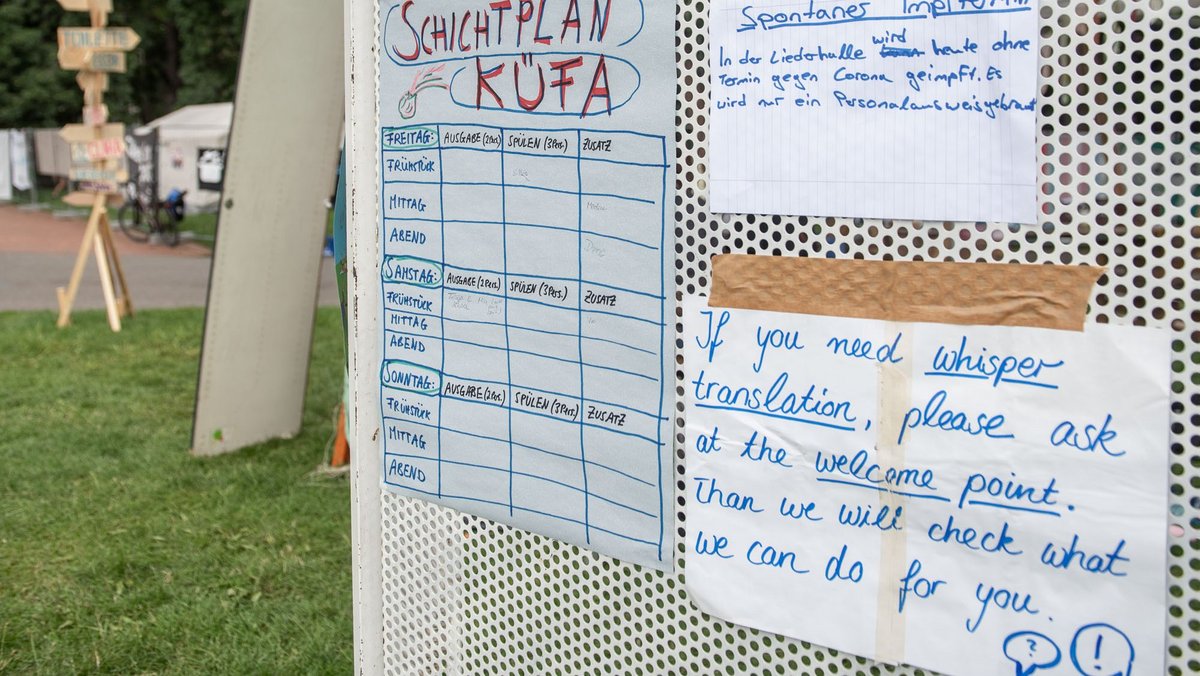 TOILETTE
SCHICHTPLAN
KÜFA
FREITAG: AUSGABE (2 Pers.) SPÜLEN (3 Pers.) ZUSATZ
FRÜHSTÜCK
MITTAG
ABEND
SAMSTAG: AUSGABE (2 Pers.) SPÜLEN (3 Pers.) ZUSATZ
FRÜHSTÜCK
MITTAG
ABEND
SONNTAG: AUSGABE (2 Pers.) SPÜLEN (3 Pers.) ZUSATZ
FRÜHSTÜCK
MITTAG
ABEND
Spontanes Impftermin
In der Liederhalle wird heute ohne
Termin gegen Corona geimpft. Es
wird nur ein Personalausweis gebraucht
If you need whisper
translation, please ask
at the welcome point.
Than we will check what
we can do for you.
?
!